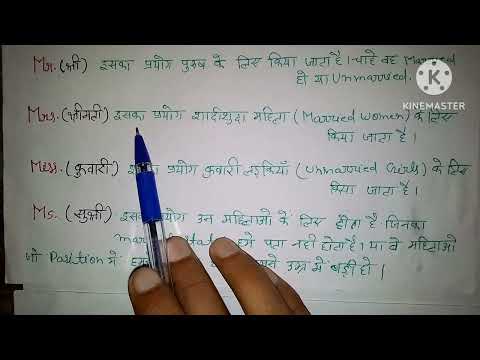 Mr. (श्री) इसका प्रयोग पुरुष के लिए किया जाता है। चाहे वह Married
हो या Unmarried.
KINEMASTER
Mrs. (श्रीमती) इसका प्रयोग शादीशुदा महिला (Married Women) के लिए
किया जाता है।
Miss. (कुवारी) प्रयोग कुवारी लड़कियाँ (Unmarried Girls) के लिए
किया जाता है।
Ms. (सुश्री) इसका प्रयोग उन महिलाओं के लिए होता है जिनका
हमें पता नहीं होता है। या वे महिलाओं
जो Position में उम्र में बड़ी हो।